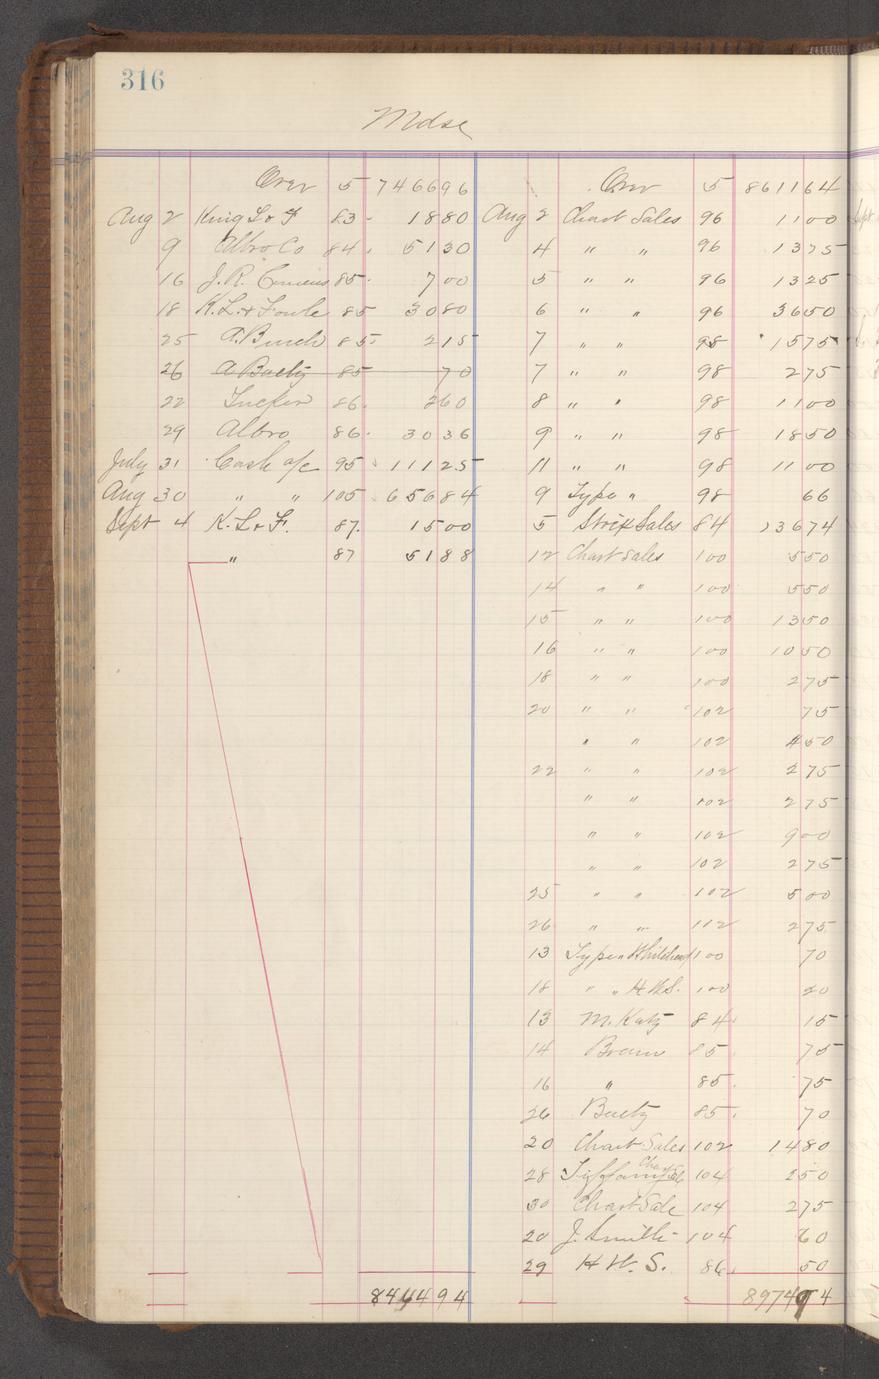 316
Mdse
Over 5 7466 96
Aug 2 King L & F 83 18 80
9 Albro Co 84 51 30
16 J.R. 85 7 00
18 K.L. & Fowle 85 30 80
25 A. Burch 85 2 15
26 A Buety 85 70
22 Tucker 86 2 60
29 Albro 86 30 36
July 31 Cash a/c 95 111 25
Aug 30 " " 105 656 84
Sept 4 K. L & F. 87 15 00
" 87 51 88
8444 94
Over 5 8611 64
Aug 2 Chart Sales 96 11 00
4 " " 96 13 75
5 " " 96 13 25
6 " " 96 36 50
7 " " 98 15 75
7 " " 98 2 75
8 " " 98 11 00
9 " " 98 18 50
11 " " 98 11 00
9 Type " 98 66
5 Strip Sales 84 136 74
12 Chart Sales 100 5 50
14 " " 100 5 50
15 " " 100 13 50
16 " " 100 10 50
18 " " 100 2 75
20 " " 102 75
" " 102 4 50
22 " " 102 2 75
" " 102 2 75
" " 102 9 00
" " 102 2 75
25 " " 102 5 00
26 " " 102 2 75
13 Type " 100 70
18 " " H.W.S. 100 20
13 M. Katz 84 15
14 Braun 85 75
16 " 85 75
26 Buety 85 70
20 Chart Sales 102 14 80
28 Tiffany Chart Sale 104 2 50
30 Chart Sale 104 2 75
20 J. Smith 104 60
29 H. W. S. 86 50
8974 94